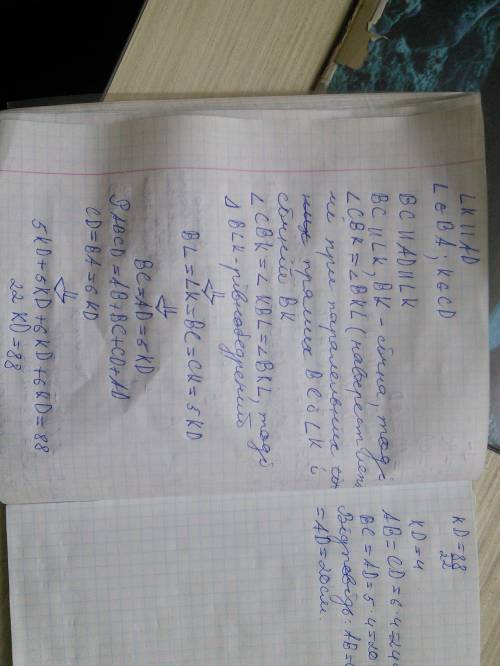 LK || AD
L ∈ BA; K ∈ CD
BC || AD || LK
BC || LK, BK - січна, тоді
∠CBK = ∠BKL (навхрест леж
ні при паралельних
прямих BC і LK і
січній BK
∠CBK = ∠KBL = ∠BKL, тоді
Δ BLK - рівнобедрений
⇓
BL = LK = BC = CK = 5 KD
⇓
BC = AD = 5 KD
P ABCD = AB + BC + CD + AD
CD = BA = 6 KD
⇓
5KD + 5KD + 6KD + 6KD = 88
22 KD = 88
KD = 88/22
KD = 4
AB = CD = 6·4 = 24
BC = AD = 5·4 = 20
Відповідь: AB =
= AD = 20 см.